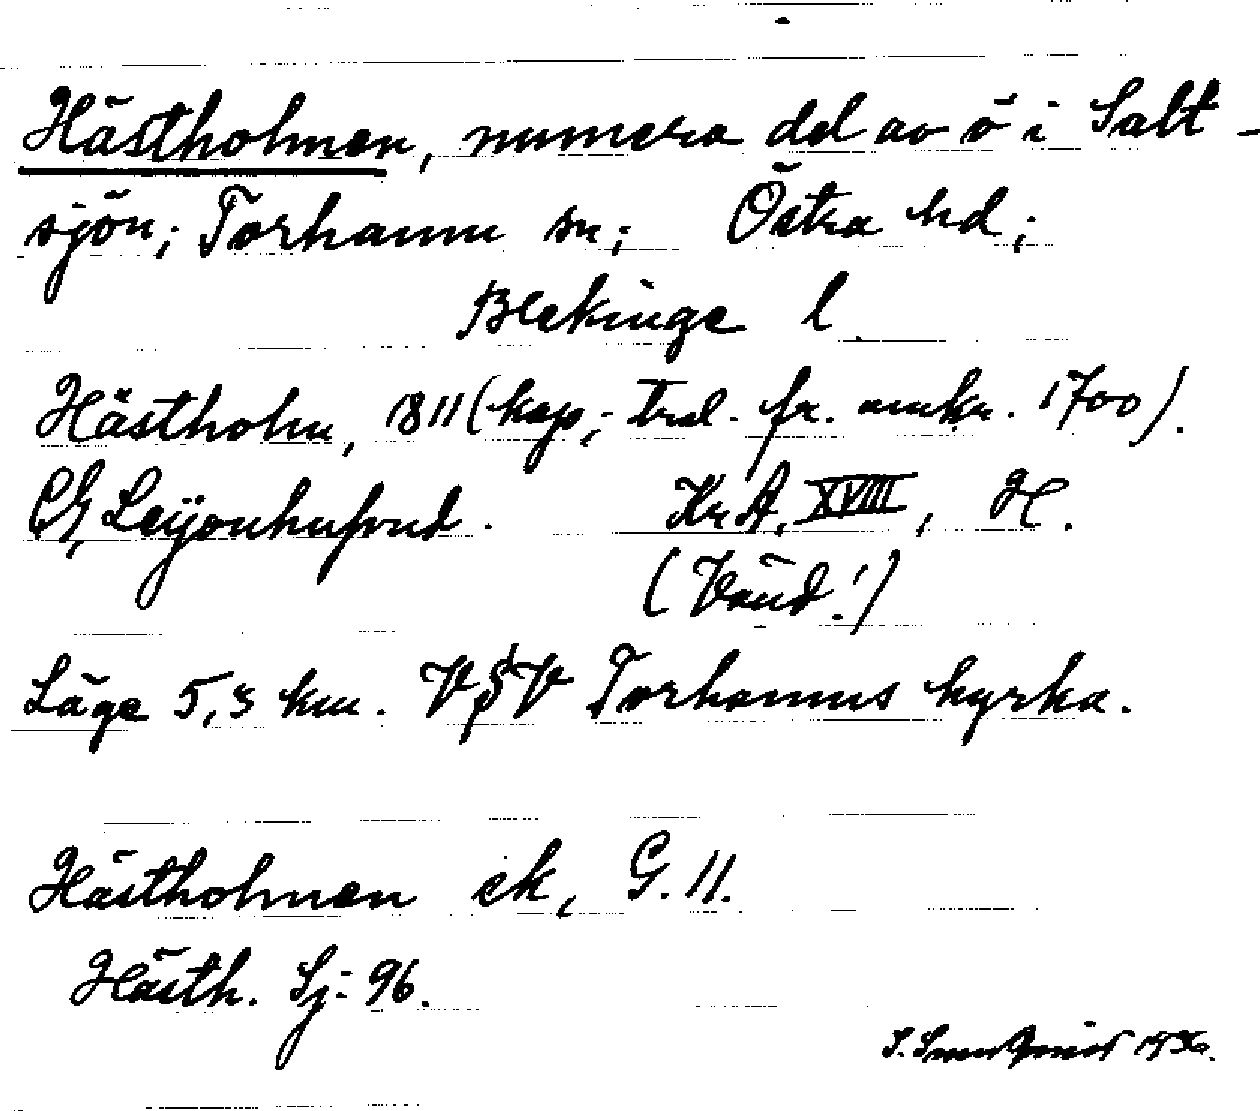 Hästholmen, numera del av ö i Salt-
sjön; Torhamn sn; Östra hd;
Blekinge l
Hästholm, 1811 (kop; trol. fr. omkr. 1700).
CG, Leijonhufvud. Kr A. XVIII, H.
(Vänd!)
Läge 5,3 km. VSV Torhamns kyrka.
Hästholmen ek, G. 11.
Hästh. Sj: 96.
1936.